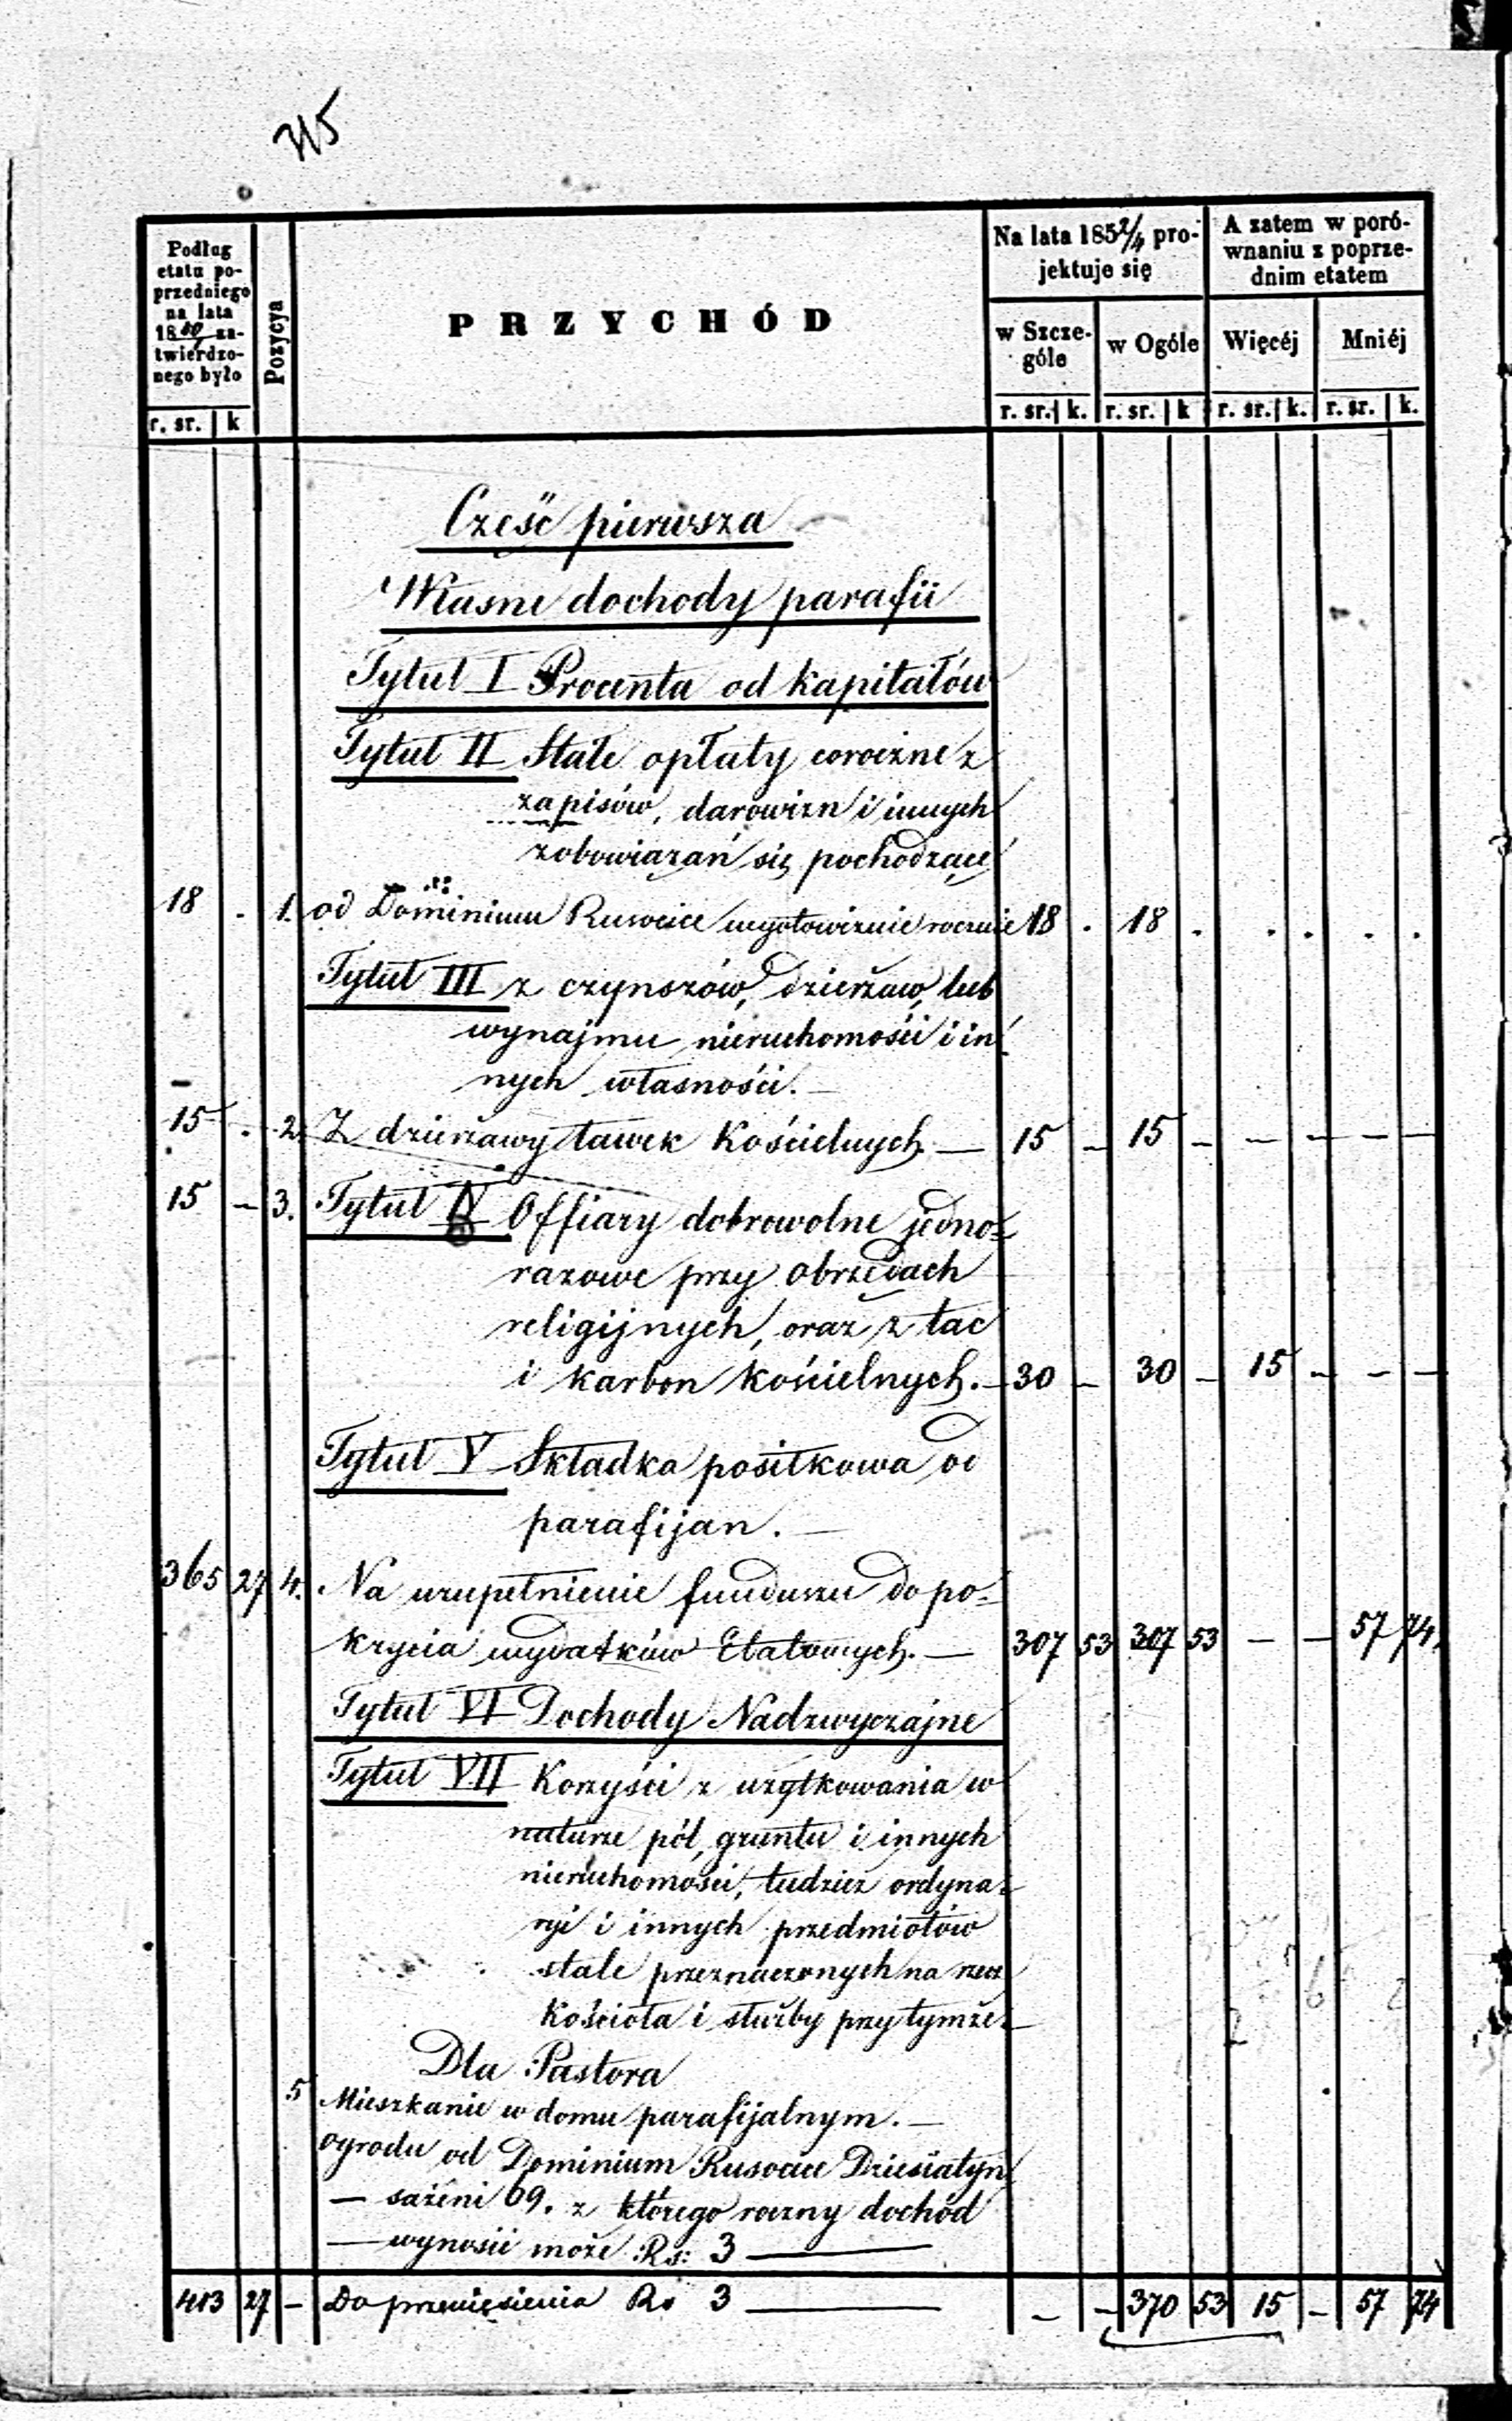 315
Podług etatu poprzedniego na lata 18 zatwierdzonego było
r. sr. | k
Pozycya
PRZYCHÓD
Na lata 1852/4 projektuje się
w Szczególe
r. sr. | k.
w Ogóle
r. sr. | k
A zatem w porównaniu z poprzednim etatem
Więcéj
r. sr. | k.
Mniéj
r. sr. | k.
Cześć pierwsza
Własne dochody parafii
Tytuł I Procenta od kapitałów
Tytuł II Stałe opłaty coroczne z
zapisów, darowizn i innych
zobowiązań się pochodzące
18 . 1. od Dominium Rusocice wygotowiznie rocznie 18 . 18 . . . . .
Tytuł III z czynszów, dzierżaw, lub
wynajmu nieruchomości i in-
nych własności. —
15 . 2. Z dzierżawy ławek Kościelnych. — 15 – 15 – – – – –
15 – 3. Tytuł IV Offiary dobrowolne jedno-
razowe przy obrzędach
religijnych, oraz z tac
i karbon kościelnych. – 30 – 30 – 15 – – –
Tytuł V Składka posiłkowa od
parafijan. —
365 27 4. Na uzupełnienie funduszu do po-
krycia wydatków Etatowych. — 307 53 307 53 – – 57 74
Tytuł VI Dochody Nadzwyczajne
Tytuł VII Korzyści z użytkowania w
naturze pól, gruntu i innych
nieruchomości, tudzież ordyna-
ryi i innych przedmiotów
stale przeznaczonych na rzecz
Kościoła i służby przy tymże.–
Dla Pastora
5 Mieszkanie w domu parafijalnym. —
ogrodu od Dominium Rusocice Dziesiatyn
— sażeni 69. z którego roczny dochód
— wynosić może Rs: 3 —
413 27 – Do przeniesienia Rs 3 — – – 370 53 15 – 57 74